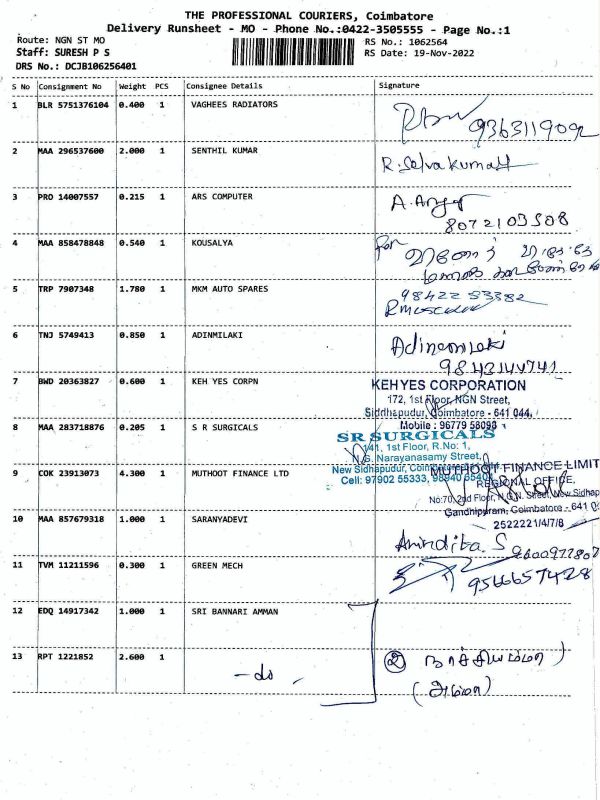 THE PROFESSIONAL COURIERS, Coimbatore
Delivery Runsheet - MO - Phone No.:0422-3505555 - Page No.:1
Route: NGN ST MO
RS No.: 1062564
Staff: SURESH P S
RS Date: 19-Nov-2022
DRS No.: DCJB106256401
S No Consignment No Weight PCS Consignee Details Signature
1 BLR 5751376104 0.400 1 VAGHEES RADIATORS
9363119092
2 MAA 296537600 2.000 1 SENTHIL KUMAR R.Selvakumar
3 PRO 14007557 0.215 1 ARS COMPUTER A.
8072103508
4 MAA 858478848 0.540 1 KOUSALYA for
5 TRP 7907348 1.780 1 MKM AUTO SPARES 98422 53382
6 TNJ 5749413 0.850 1 ADINMILAKI Adinmilaki
9843144741
7 BWD 20363827 0.600 1 KEH YES CORPN KEHYES CORPORATION
172, 1st Floor, NGN Street,
Siddhapudur, Coimbatore - 641 044.
Mobile : 96779 58098
8 MAA 283718876 0.205 1 S R SURGICALS SR SURGICALS
141, 1st Floor, R.No: 1,
N.G. Narayanasamy Street,
New Sidhapudur, Coimbatore
Cell: 97902 55333, 98940 65401
9 COK 23913073 4.300 1 MUTHOOT FINANCE LTD MUTHOOT FINANCE LIMIT
REGIONAL OFFICE,
No:70, 2nd Floor, N.G.N. Street, New Sidhap
Gandhipuram, Coimbatore - 641 0
2522221/4/7/8
10 MAA 857679318 1.000 1 SARANYADEVI Anindita. S 9600972807
11 TVM 11211596 0.300 1 GREEN MECH
9566657428
12 EDQ 14917342 1.000 1 SRI BANNARI AMMAN
13 RPT 1221852 2.600 1 -do- ② நாச்சியம்மா)
(அம்மா)